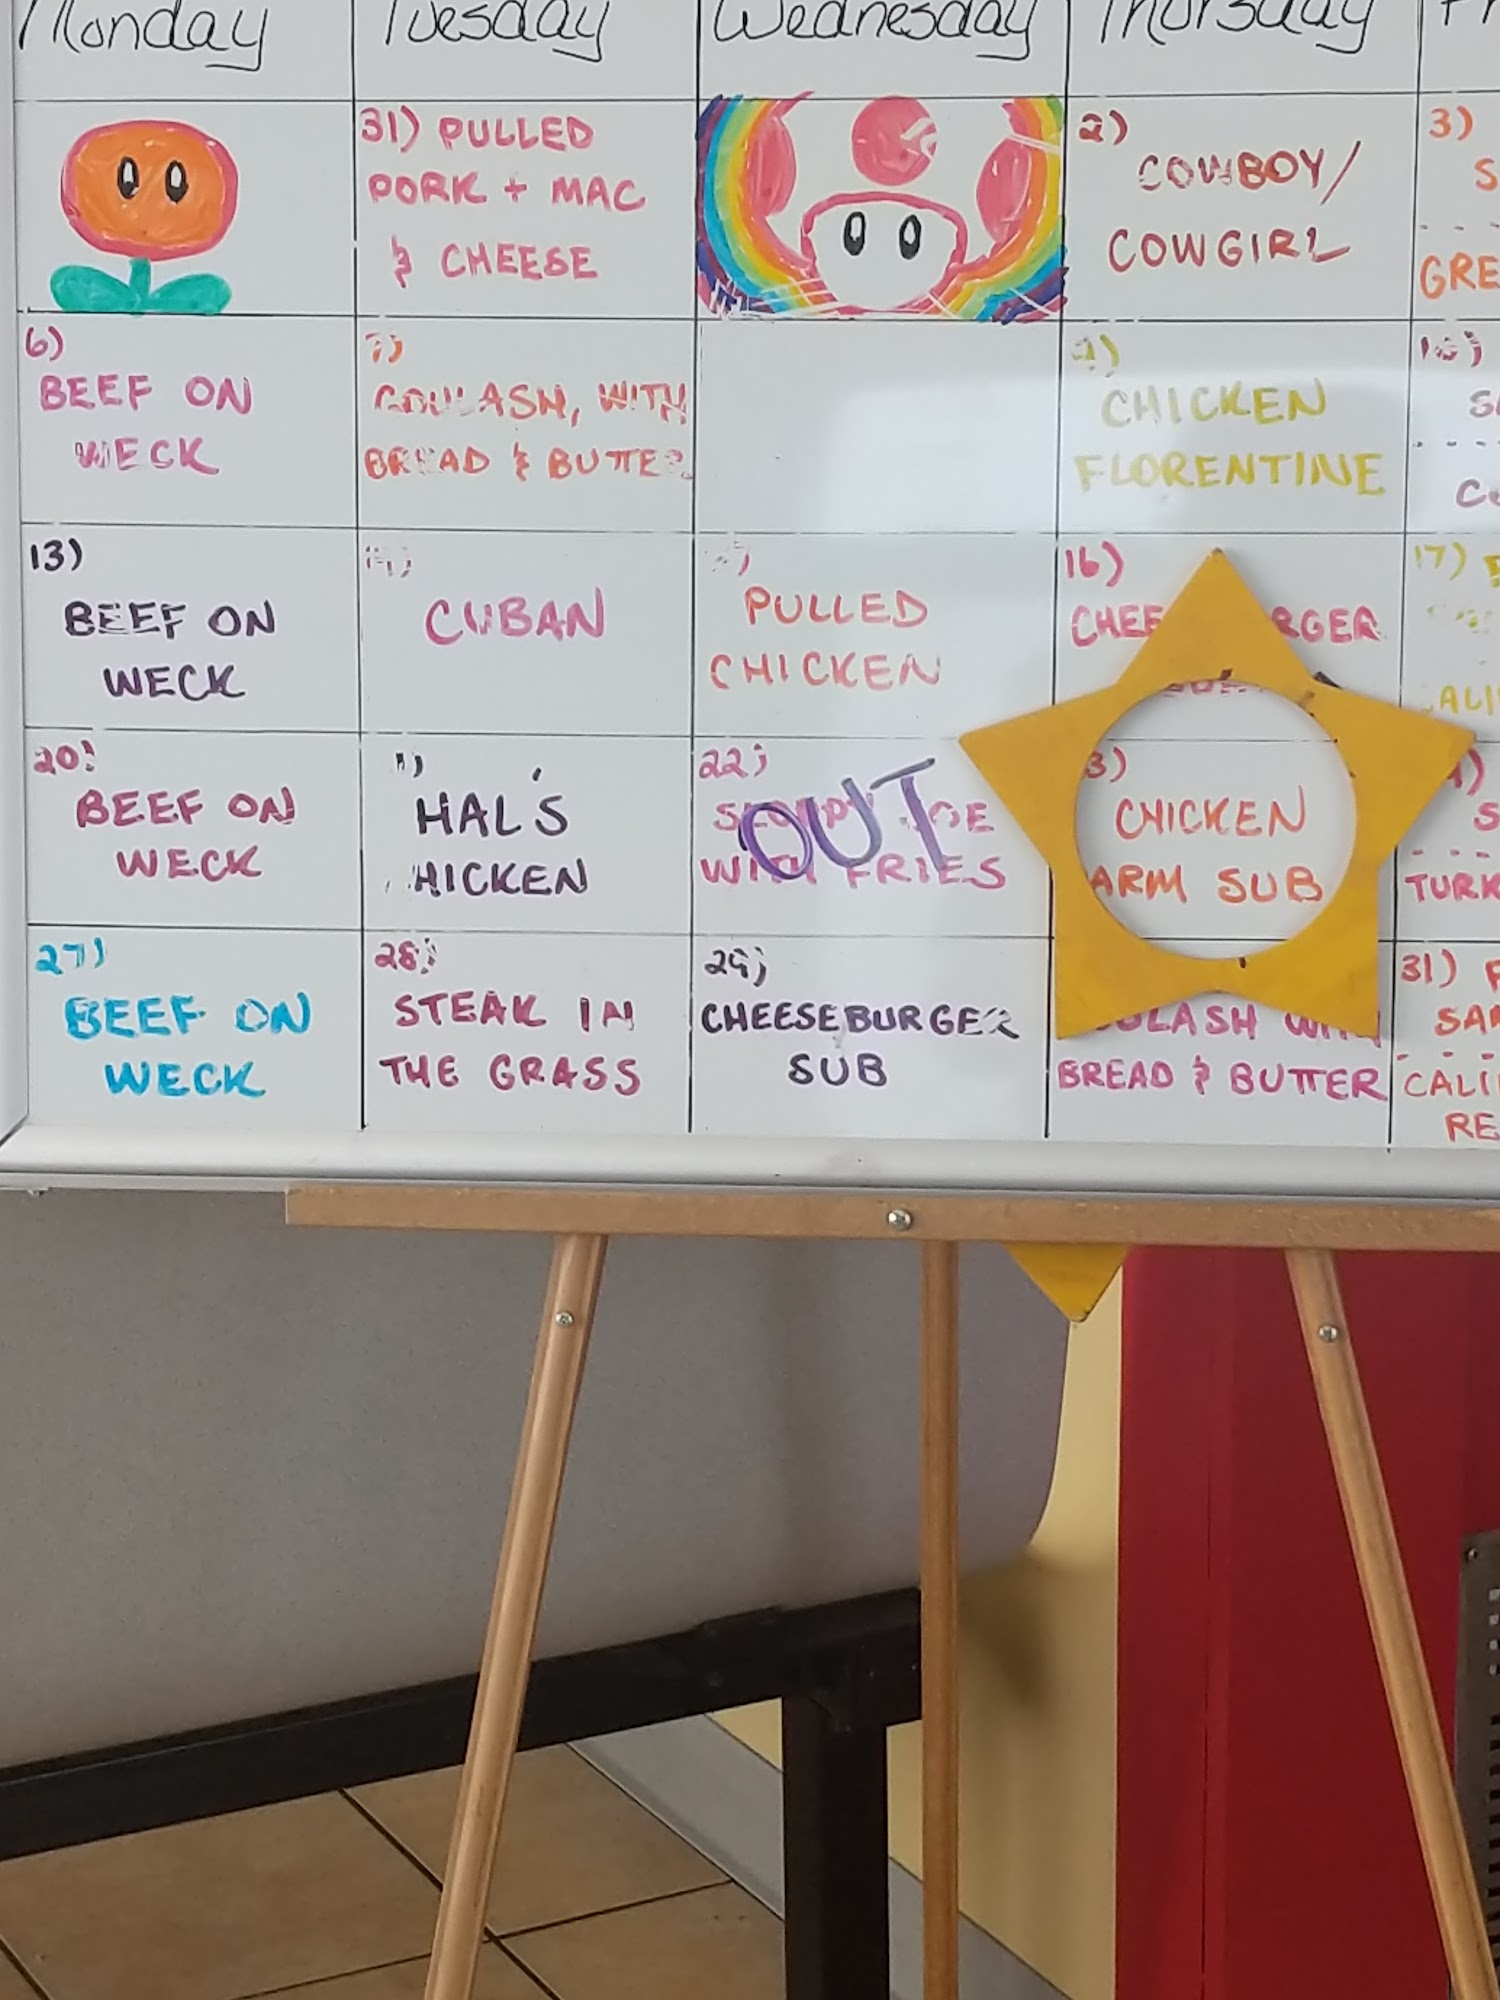 Monday Tuesday Wednesday Thursday
31) PULLED
PORK + MAC
& CHEESE
2)
COWBOY/
COWGIRL
3)
S
GRE
6)
BEEF ON
WECK
7)
GOULASH, WITH
BREAD & BUTTER
9)
CHICKEN
FLORENTINE
10)
13)
BEEF ON
WECK
CUBAN
PULLED
CHICKEN
16)
CHEE RGER
17)
ALI
20)
BEEF ON
WECK
HAL'S
HICKEN
22)
SLOPPY JOE
WITH FRIES
OUT
3)
CHICKEN
ARM SUB
S
TURK
27)
BEEF ON
WECK
28)
STEAK IN
THE GRASS
29)
CHEESEBURGER
SUB
ULASH WITH
BREAD & BUTTER
31)
SAN
CALI
RE